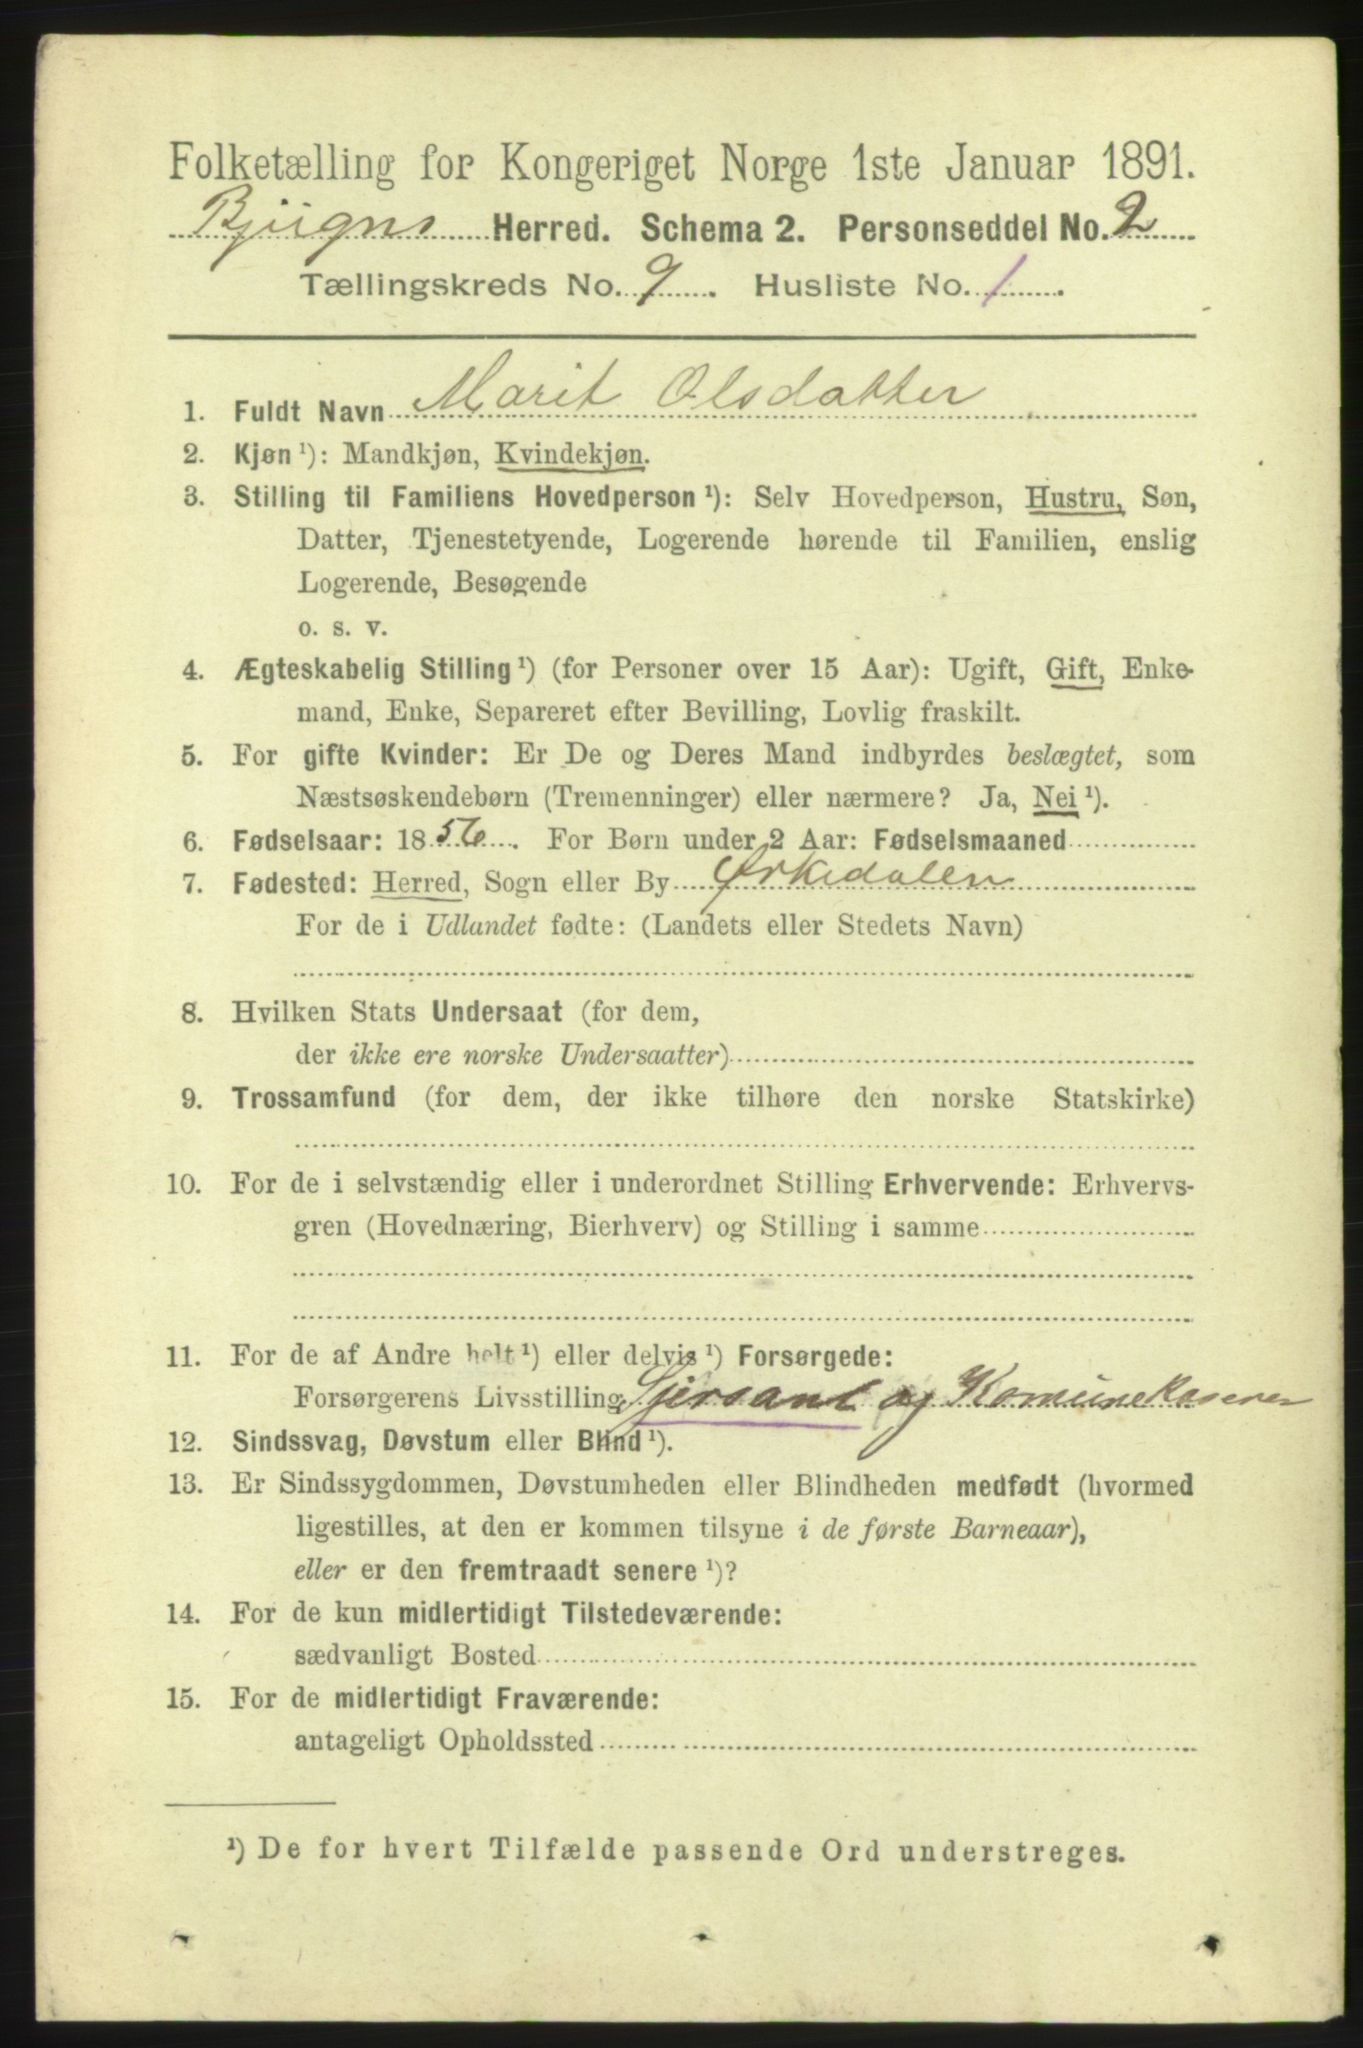 Folketælling for Kongeriget Norge 1ste Januar 1891.
Bjugns Herred. Schema 2. Personseddel No. 2
Tællingskreds No. 9. Husliste No. 1.
1. Fuldt Navn Marit Olsdatter
2. Kjøn ¹): Mandkjøn, Kvindekjøn.
3. Stilling til Familiens Hovedperson ¹): Selv Hovedperson, Hustru, Søn,
Datter, Tjenestetyende, Logerende hørende til Familien, enslig
Logerende, Besøgende
o. s. v.
4. Ægteskabelig Stilling ¹) (for Personer over 15 Aar): Ugift, Gift, Enke-
mand, Enke, Separeret efter Bevilling, Lovlig fraskilt.
5. For gifte Kvinder: Er De og Deres Mand indbyrdes beslægtet, som
Næstsøskendebørn (Tremenninger) eller nærmere? Ja, Nei ¹).
6. Fødselsaar: 1856. For Børn under 2 Aar: Fødselsmaaned
7. Fødested: Herred, Sogn eller By Ørkedalen
For de i Udlandet fødte: (Landets eller Stedets Navn)
8. Hvilken Stats Undersaat (for dem,
der ikke ere norske Undersaatter)
9. Trossamfund (for dem, der ikke tilhøre den norske Statskirke)
10. For de i selvstændig eller i underordnet Stilling Erhvervende: Erhvervs-
gren (Hovednæring, Bierhverv) og Stilling i samme
11. For de af Andre helt ¹) eller delvis ¹) Forsørgede:
Forsørgerens Livsstilling Sjersant og Komunekaserer
12. Sindssvag, Døvstum eller Blind ¹).
13. Er Sindssygdommen, Døvstumheden eller Blindheden medfødt (hvormed
ligestilles, at den er kommen tilsyne i de første Barneaar),
eller er den fremtraadt senere ¹)?
14. For de kun midlertidigt Tilstedeværende:
sædvanligt Bosted
15. For de midlertidigt Fraværende:
antageligt Opholdssted
¹) De for hvert Tilfælde passende Ord understreges.